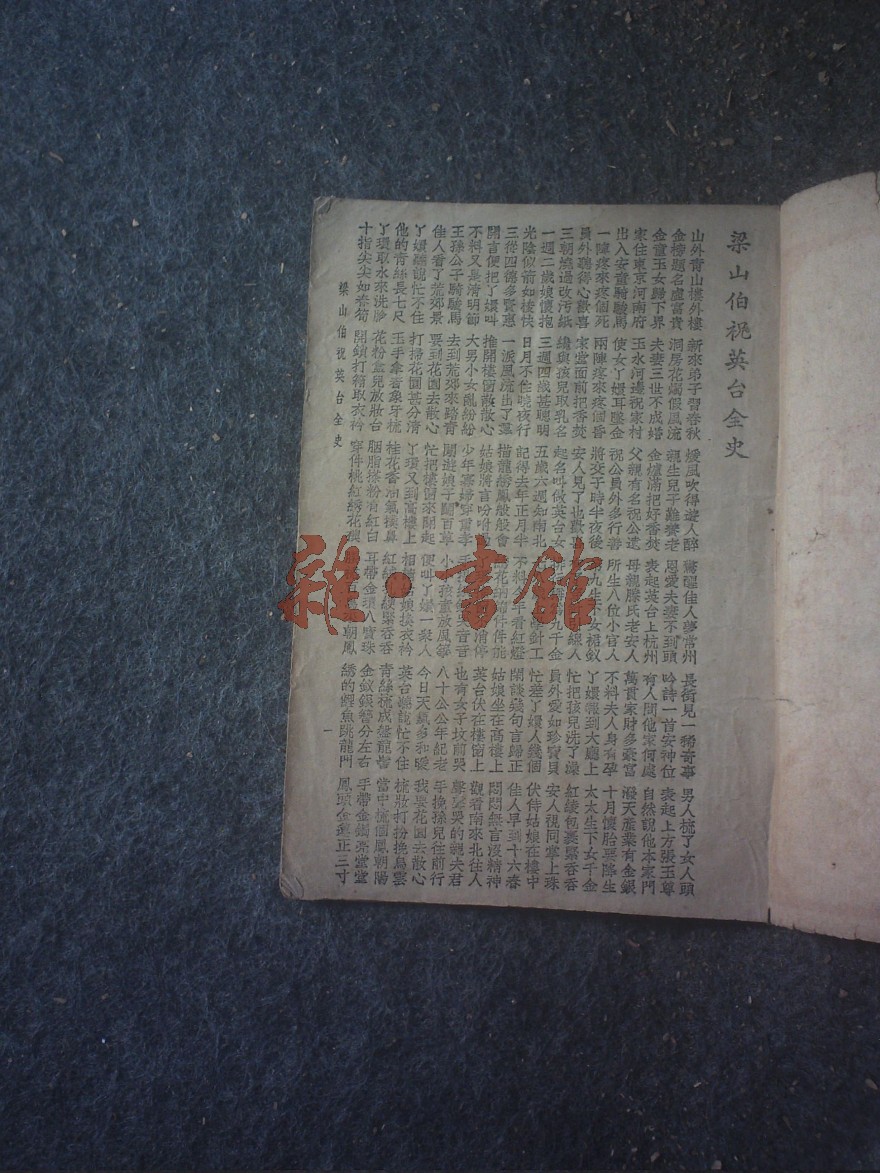 梁山伯祝英台全史
山外青山樓外樓 新來弟子習春秋 煖風吹得遊人醉 驚醒佳人夢常州 長街見一稀奇事 男人梳了女人頭
金榜題名虛富貴 洞房花燭假風流 親生兒子難養老 恩愛夫妻不到頭 吟詩一首安神位 表起上方張玉尊
金童玉女歸下界 夫妻三世不成婚 金爐滿把好香焚 表起英台上杭州 有人問他家何處 自然說他本家門
家住東京河南府 玉水河邊祝家村 父親有名祝公遠 母親滕氏老安人 萬貫家財多豪富 潑天產業有金銀
出入安童騎駿馬 使女丫嬛耳墜金 祝公員外多行善 所生八位小官人 不料夫人身有孕 十月懷胎要降生
一陣疼來疼個死 兩陣疼來疼個昏 將交子時半夜後 九生女裙釵 丫嬛報到大廳上 太太生下女千金
員外聽得心歡喜 家堂面前把香焚 安人見了也歡 人 忙把孩兒洗了澡 紅綾包裹緊呑呑
三朝燒過改汚紙 與孩兒取乳名 起名叫做英台女 九千金 員外愛如珍寶貝 安人視同掌上珠
一週二歲娘懷抱 三週四歲甚聰明 五歲六週知南北 針工 忙差丫嬛人幾個 伏侍姑娘在樓中
光陰似箭如梭快 日月不住曉夜行 記得去年正月半 不料今年看紅燈 閒談幾句言歸正 佳人早到十六春
三從四德多賢惠 一派風流出了羣 描龍綉鳳般般會 花件件能 姑娘坐在高樓上 悶悶無言沒精神
開言便把丫嬛叫 推開樓窗散散心 姑娘將言吩咐 停 英台伏在樓窗上 觀看南來北往人
不料又是清明節 大男小女亂紛紛 少年寡婦穿重孝 手 哭音音 也有女子坟前哭 聲聲哭的親夫君
王孫公子騎駿馬 去到荒郊來踏青 鬧遊娘子鬪百草 小孩童放風箏 八十公公年紀老 手挽孫兒往前行
佳人看了荒郊景 要到花園去散心 忙把樓窗來關起 便叫丫嬛一衆人 今日天氣多和暖 我要花園去散心
丫嬛聽說忙不住 打掃花園甚分清 丫嬛又到高樓上 相請姑娘換衣衿 英台聽說忙不住 梳妝打扮挽烏雲
他的青絲長七尺 玉手拿着象牙梳 桂花香油氣撲鼻 紅絨緊呑呑 青絲梳成盤龍髻 當中梳個鳳朝陽
丫環取水來洗臉 花粉盒兒放妝台 胭脂搽粉有紅白 耳帶金環八寶珠 金釵銀簪分左右 手帶金鐲亮堂堂
十指尖尖如春筍 開鎖打箱取衣衿 穿件桃紅綉花襖 朝鳳 綉的鯉魚跳龍門 鳳頭金蓮正三寸
梁山伯祝英台全史
一
雜·書館